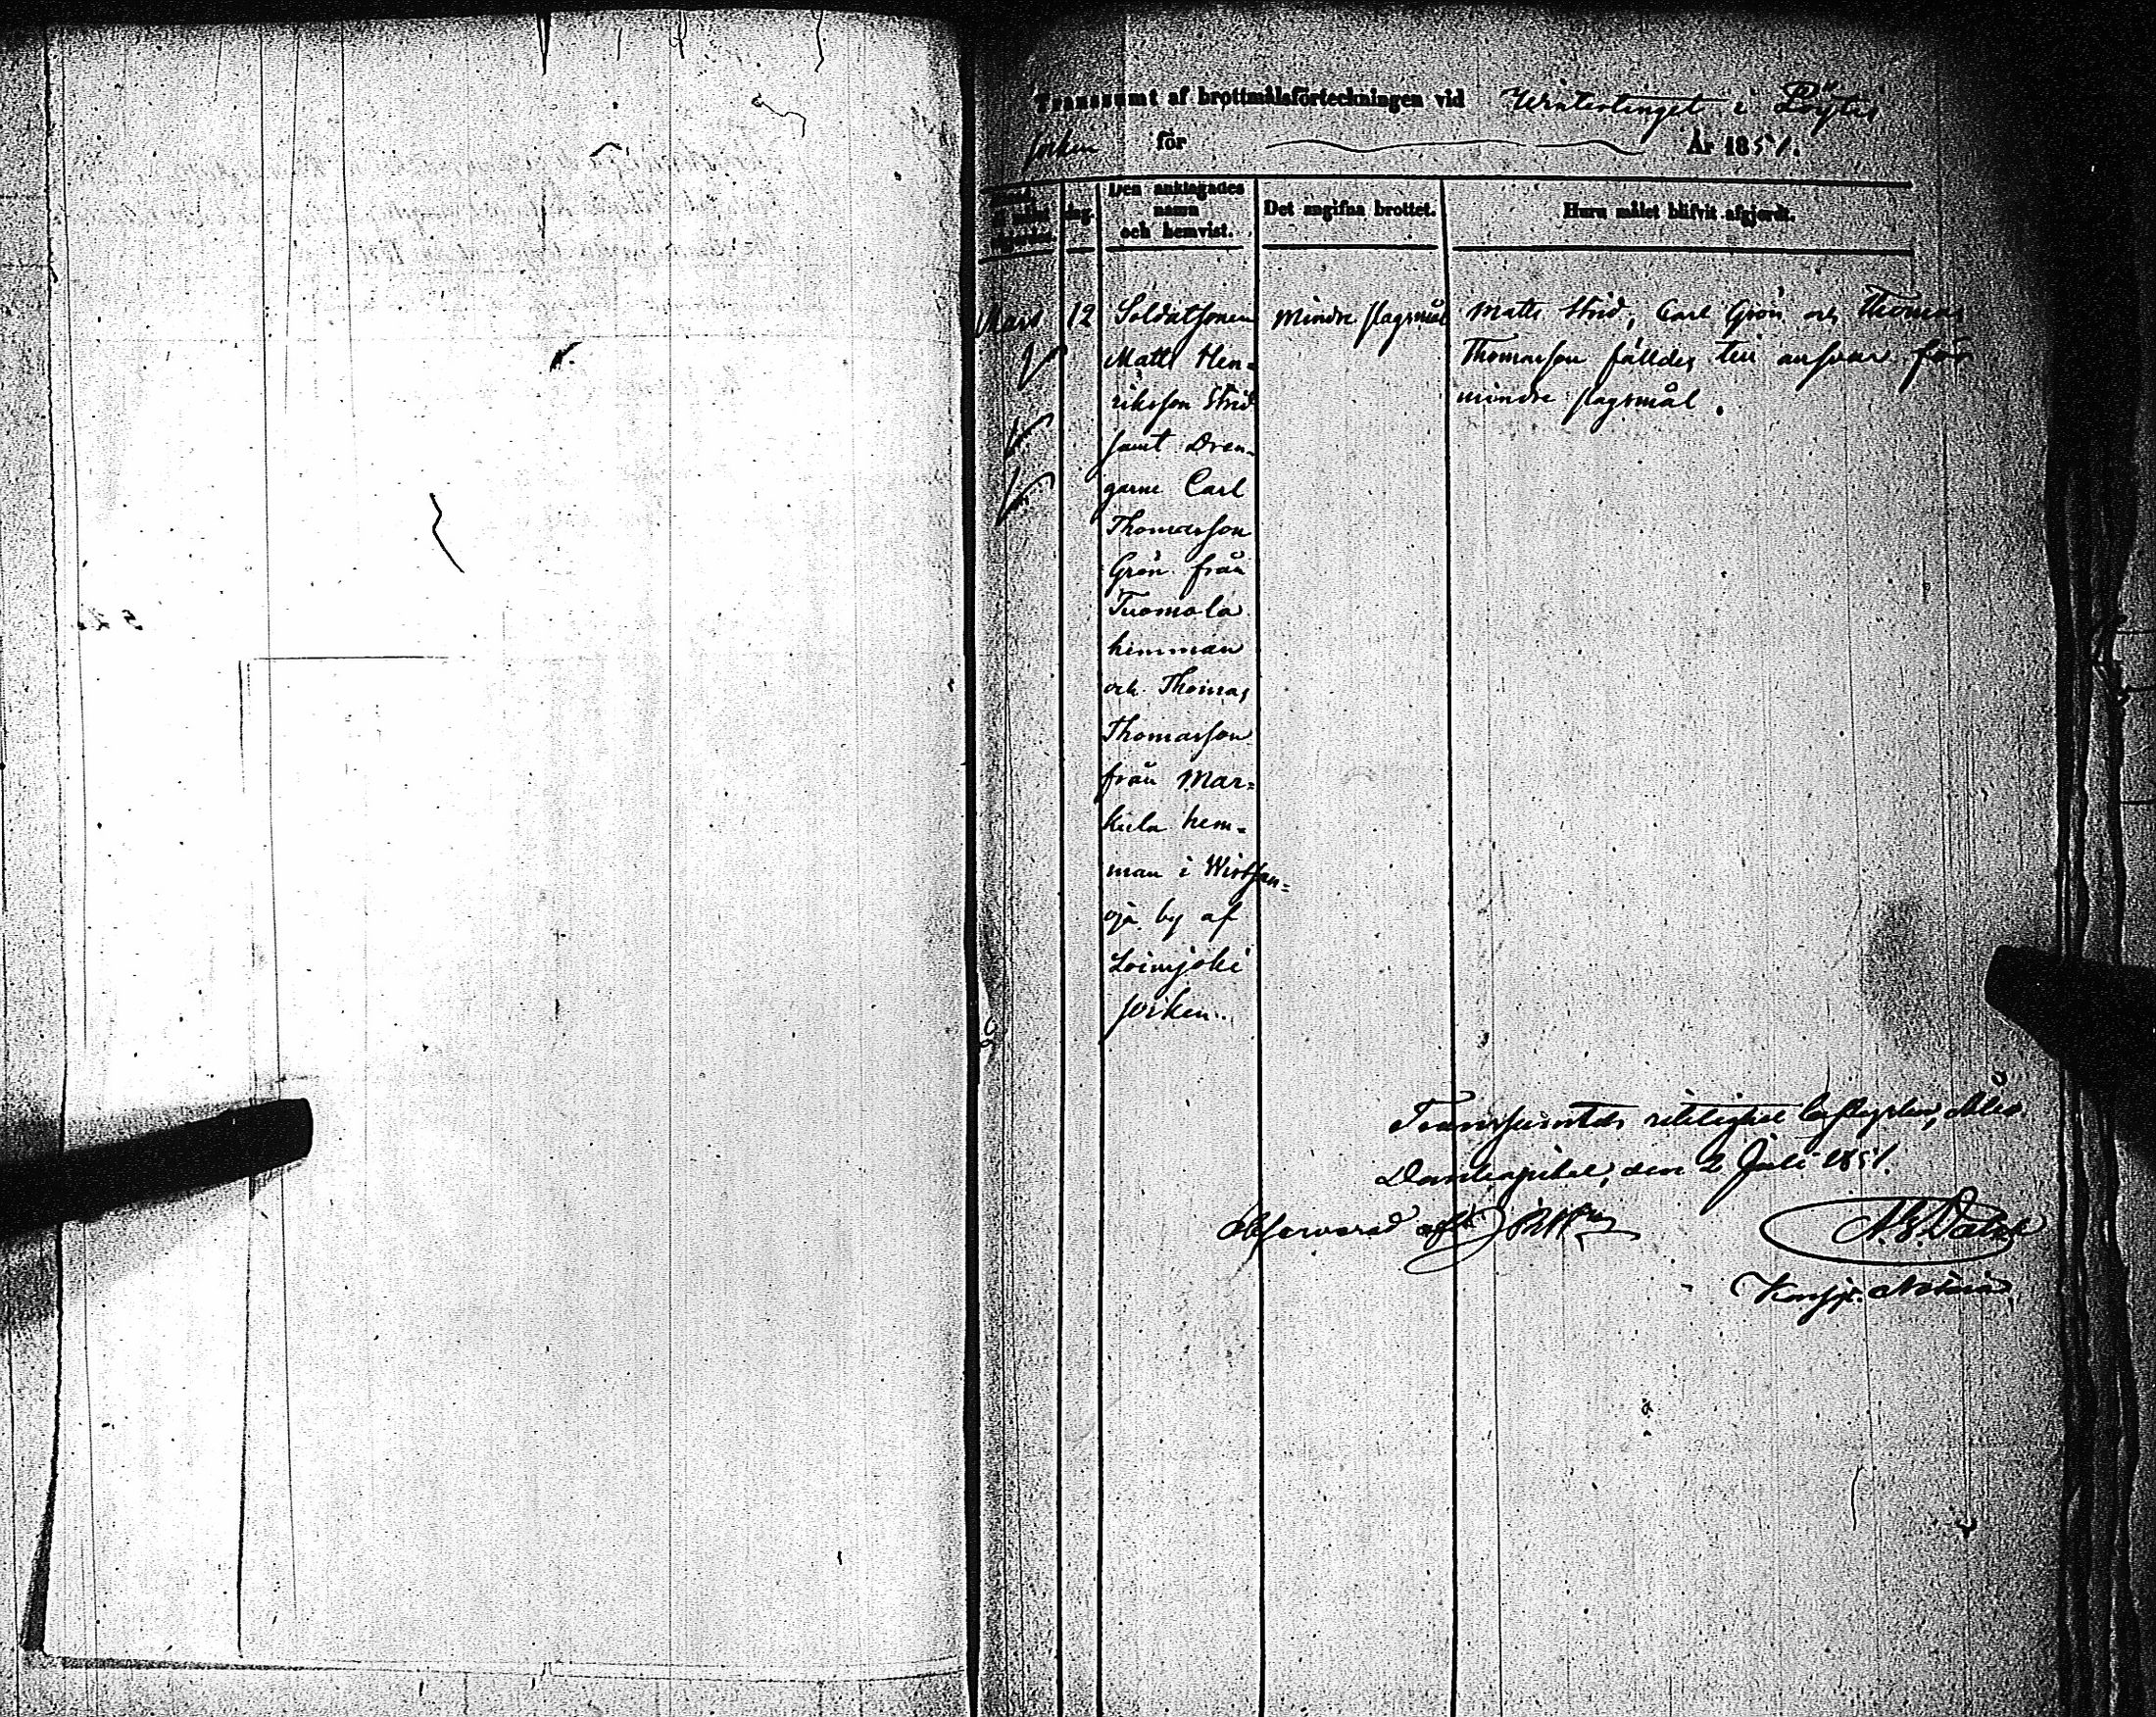 Transsumt af brottmålsförteckningen vid Wintertinget i Pöytis
socken för År 1851.
dag.
Den anklagades namn och hemvist.
Det angifna brottet.
Huru målet blifvit afgjordt.
Mars 12
Soldatsonen
Matts Hen-
riksson Strid
samt Dren-
garne Carl
Thomasson
Grön från
Tuomola
hemman
och Thomas
Thomasson
från Mar-
kula hem-
man i Wirtsan-
oja by af
Loimjoki
socken.
Mindre slagsmål
Matts Strid, Carl Grön och Thomas
Thomasson fälldes till ansvar för
mindre slagsmål.
Transsumtets riktighet bestyrker, Åbo
Domkapitel, den 2 Juli 1851.
Konsist. Notarie